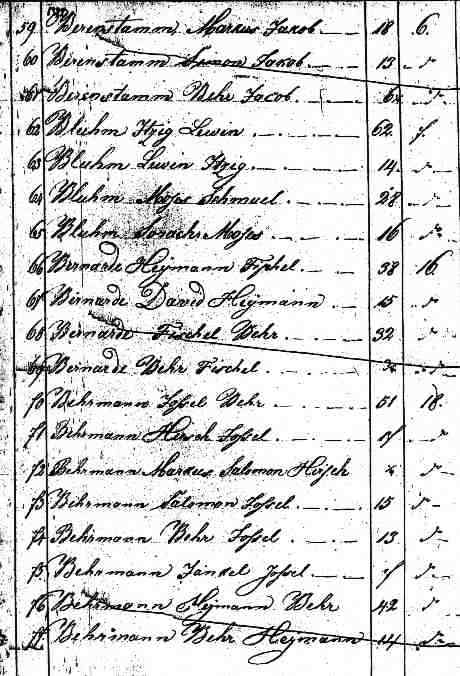 59 Berenstamm Markus Jakob 18 6.
60 Berenstamm Simon Jakob 13 d-
61 Berenstamm Behr Jacob. d-
62 Bluhm Itzig Lewin 62 7.
63 Bluhm Lewin Itzig. 14. d-
64 Bluhm Moses Schmuel. 28 d-
65 Bluhm Moses 16 d-
66 Bernarde Heymann Fischel. 38 16.
67 Bernarde Dawid Heymann 15 d-
68 Bernarde Fischel Behr. 32 d-
69 Bernarde Behr Fischel. d-
70 Behrmann Jossel Behr 51 18.
71 Behrmann Hirsch Jossel. d-
72 Behrmann Markus Salomon Hirsch d-
73 Behrmann Salomon Jossel. 15 d-
74 Behrmann Behr Jossel. 13 d-
75 Behrmann Jankel Jossel 7 d-
76 Behrmann Heymann Behr 42 d-
77 Behrmann Behr Heymann 14 d-